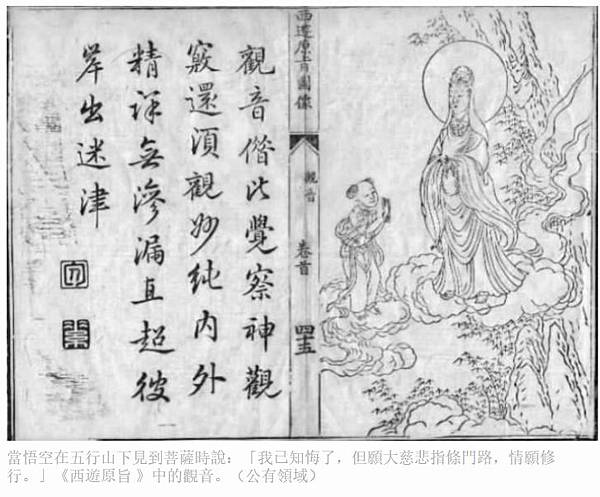 西遊原旨圖像
觀音
卷首
四十五
觀音借此覺察神觀
竅還須觀妙純內外
精詳無滲漏直超彼
岸出迷津
當悟空在五行山下見到菩薩時說:「我已知悔了,但願大慈悲指條門路,情願修
行。」《西遊原旨 》中的觀音。(公有領域)